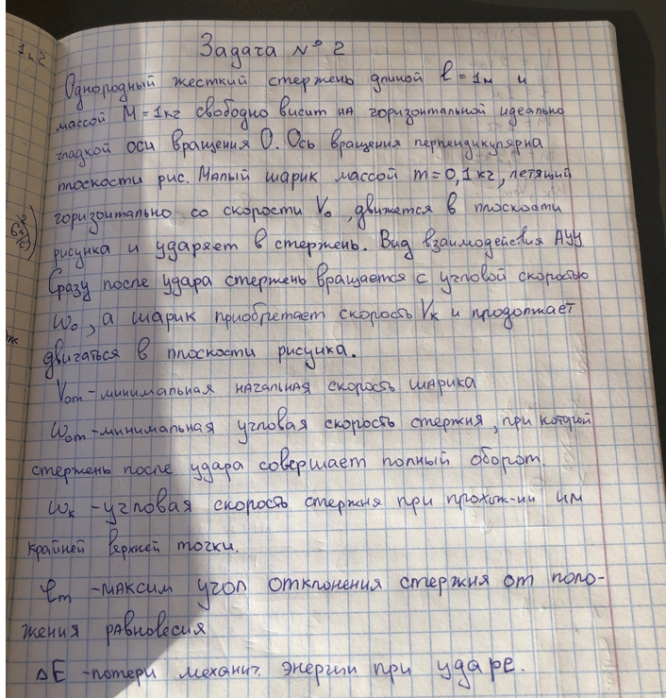 Задача №2
Однородный жесткий стержень длиной l = 1м и
массой M = 1кг свободно висит на горизонтальной идеально
гладкой оси вращения О. Ось вращения перпендикулярна
плоскости рис. Малый шарик массой m = 0,1кг, летящий
горизонтально со скорости V₀, движется в плоскости
рисунка и ударяет в стержень. Вид взаимодействия АУУ.
Сразу после удара стержень вращается с угловой скоростью
ω₀, а шарик приобретает скорость Vₖ и продолжает
двигаться в плоскости рисунка.
V₀ₘ - минимальная начальная скорость шарика
ω₀ₘ - минимальная угловая скорость стержня, при которой
стержень после удара совершает полный оборот.
ωₖ - угловая скорость стержня при прохож-нии им
крайней верхней точки.
φₘ - максим угол отклонения стержня от поло-
жения равновесия
ΔE - потери механич. энергии при ударе.